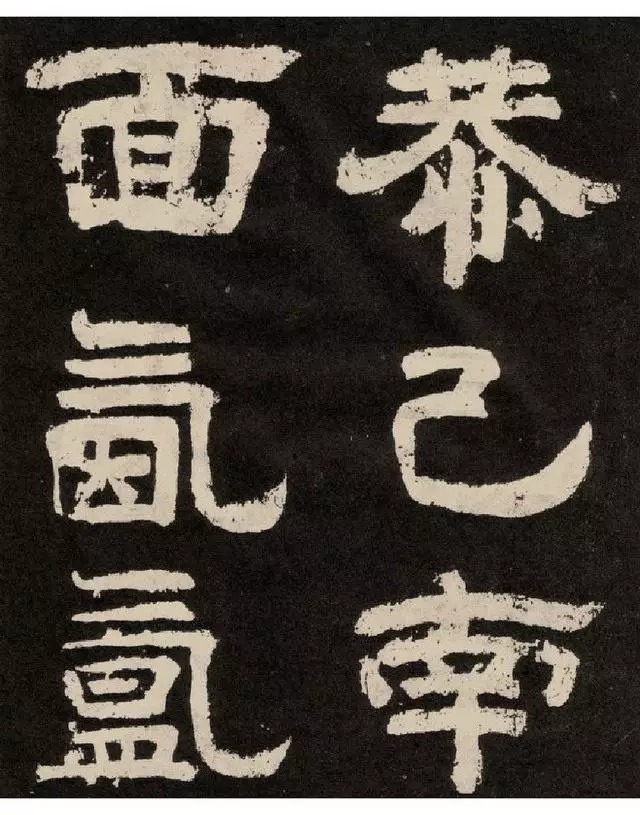 恭己南
面氤氲